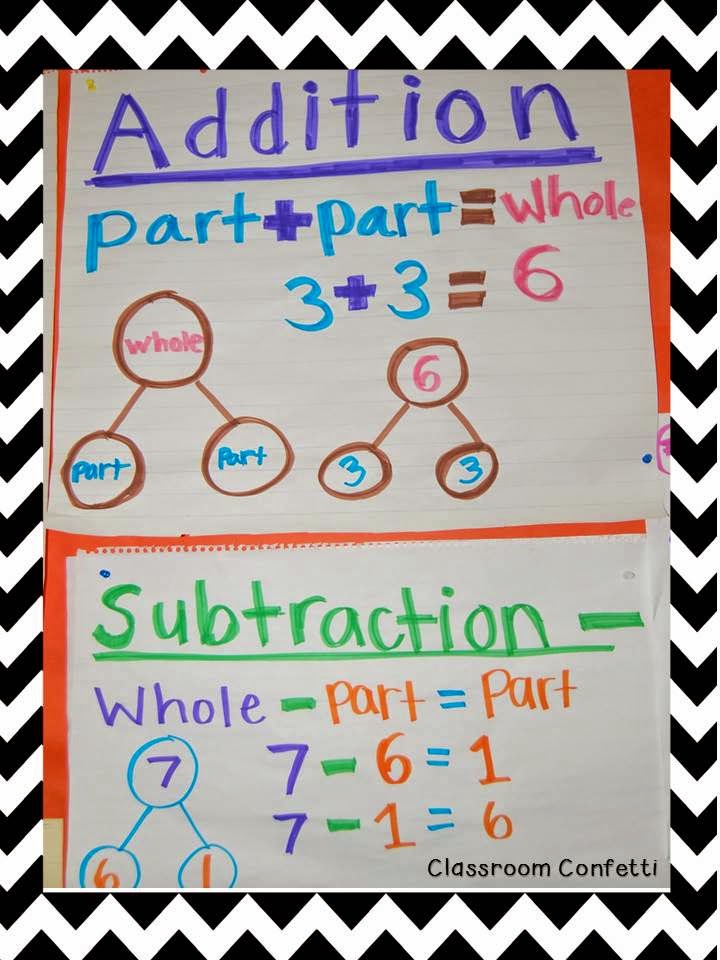 Addition
part + part = whole
3 + 3 = 6
whole
6
part
part
3
3
Subtraction -
Whole - part = Part
7
7 - 6 = 1
7 - 1 = 6
6
1
Classroom Confetti